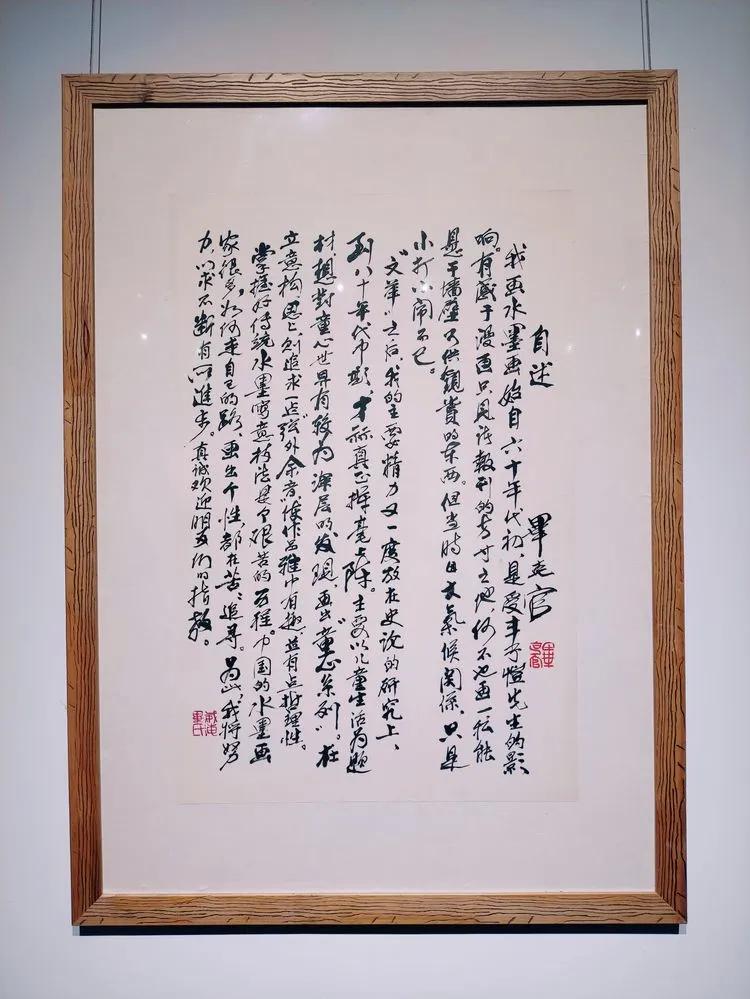 自述
畢克官
我画水墨画始自六十年代初,是受丰子愷先生的影
响。有感于漫画只見诸報刊的方寸之地,何不也画一些能
悬于墙壁可供観赏的东西。但当時文氣候関係,只是
小打小闹而已。
"文革"之后,我的主要精力又一度放在史论的研究上,
到八十年代中期,才称真正挥毫上阵。主要以儿童生活为题
材,想對童心世界有较为深层的发現,画出"童心系列"。在
立意构思上,则追求一点"弦外余音",使作品雅中有趣,並有点哲理性。
掌握好传统水墨寫意技法是个艰苦的历程。中国的水墨画
家很多,如何走自己的路,画出个性,都在苦苦追寻。为此,我将努
力,以求不断有所進步。真诚欢迎朋友们的指教。
威海畢氏